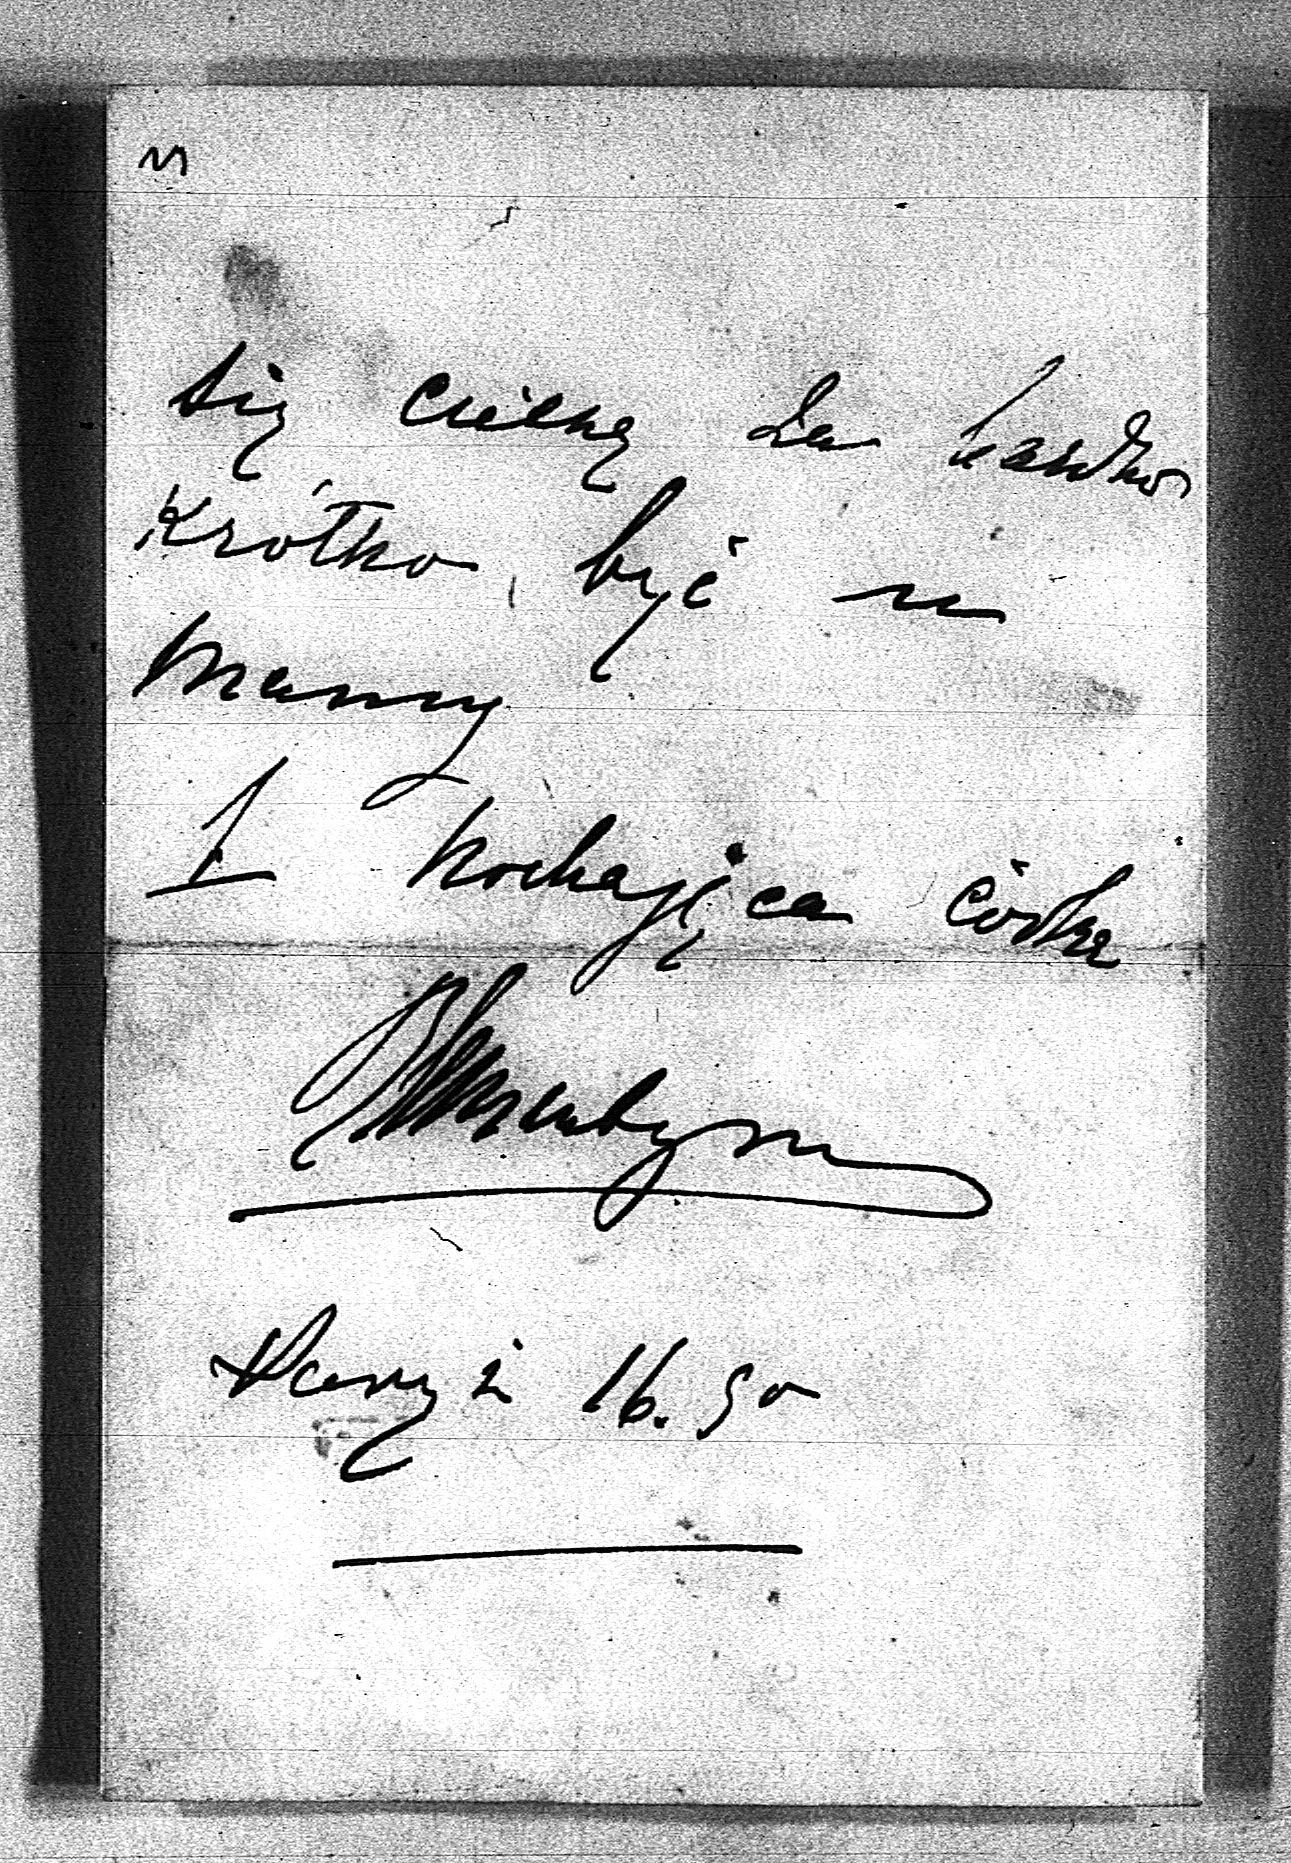 się cieszę za bardzo
krótko, być u
Mamy
I kochająca córka
Paryż 16. 50